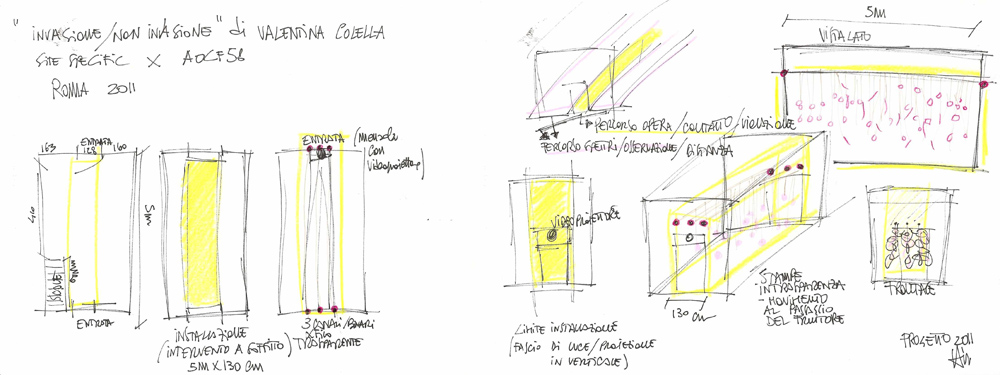 "INVASIONE/NON INVASIONE" di VALENTINA COLELLA
SITE SPECIFIC X AOCF58
ROMA 2011
163
ENTRATA
128
160
5m
ENTRATA
INSTALLAZIONE
(INTERVENTO A SOFFITTO)
5M X 130 CM
ENTRATA
(MENSOLA
CON
VIDEOPROIETTORE)
3 BINARI/
TRASPARENTE
PERCORSO OPERA/CONTATTO/VIOLAZIONE
PERCORSO ESTERI/OSSERVAZIONE/DISTANZA
5M
VISTA LATO
VIDEOPROIETTORE
LIMITE INSTALLAZIONE
(FASCIO DI LUCE/PROIEZIONE
IN VERTICALE)
130 cm
- STAMPE
IN TRASPARENZA
- MOVIMENTO
AL PASSAGGIO
DEL FRUITORE
FRONTALE
PROGETTO 2011